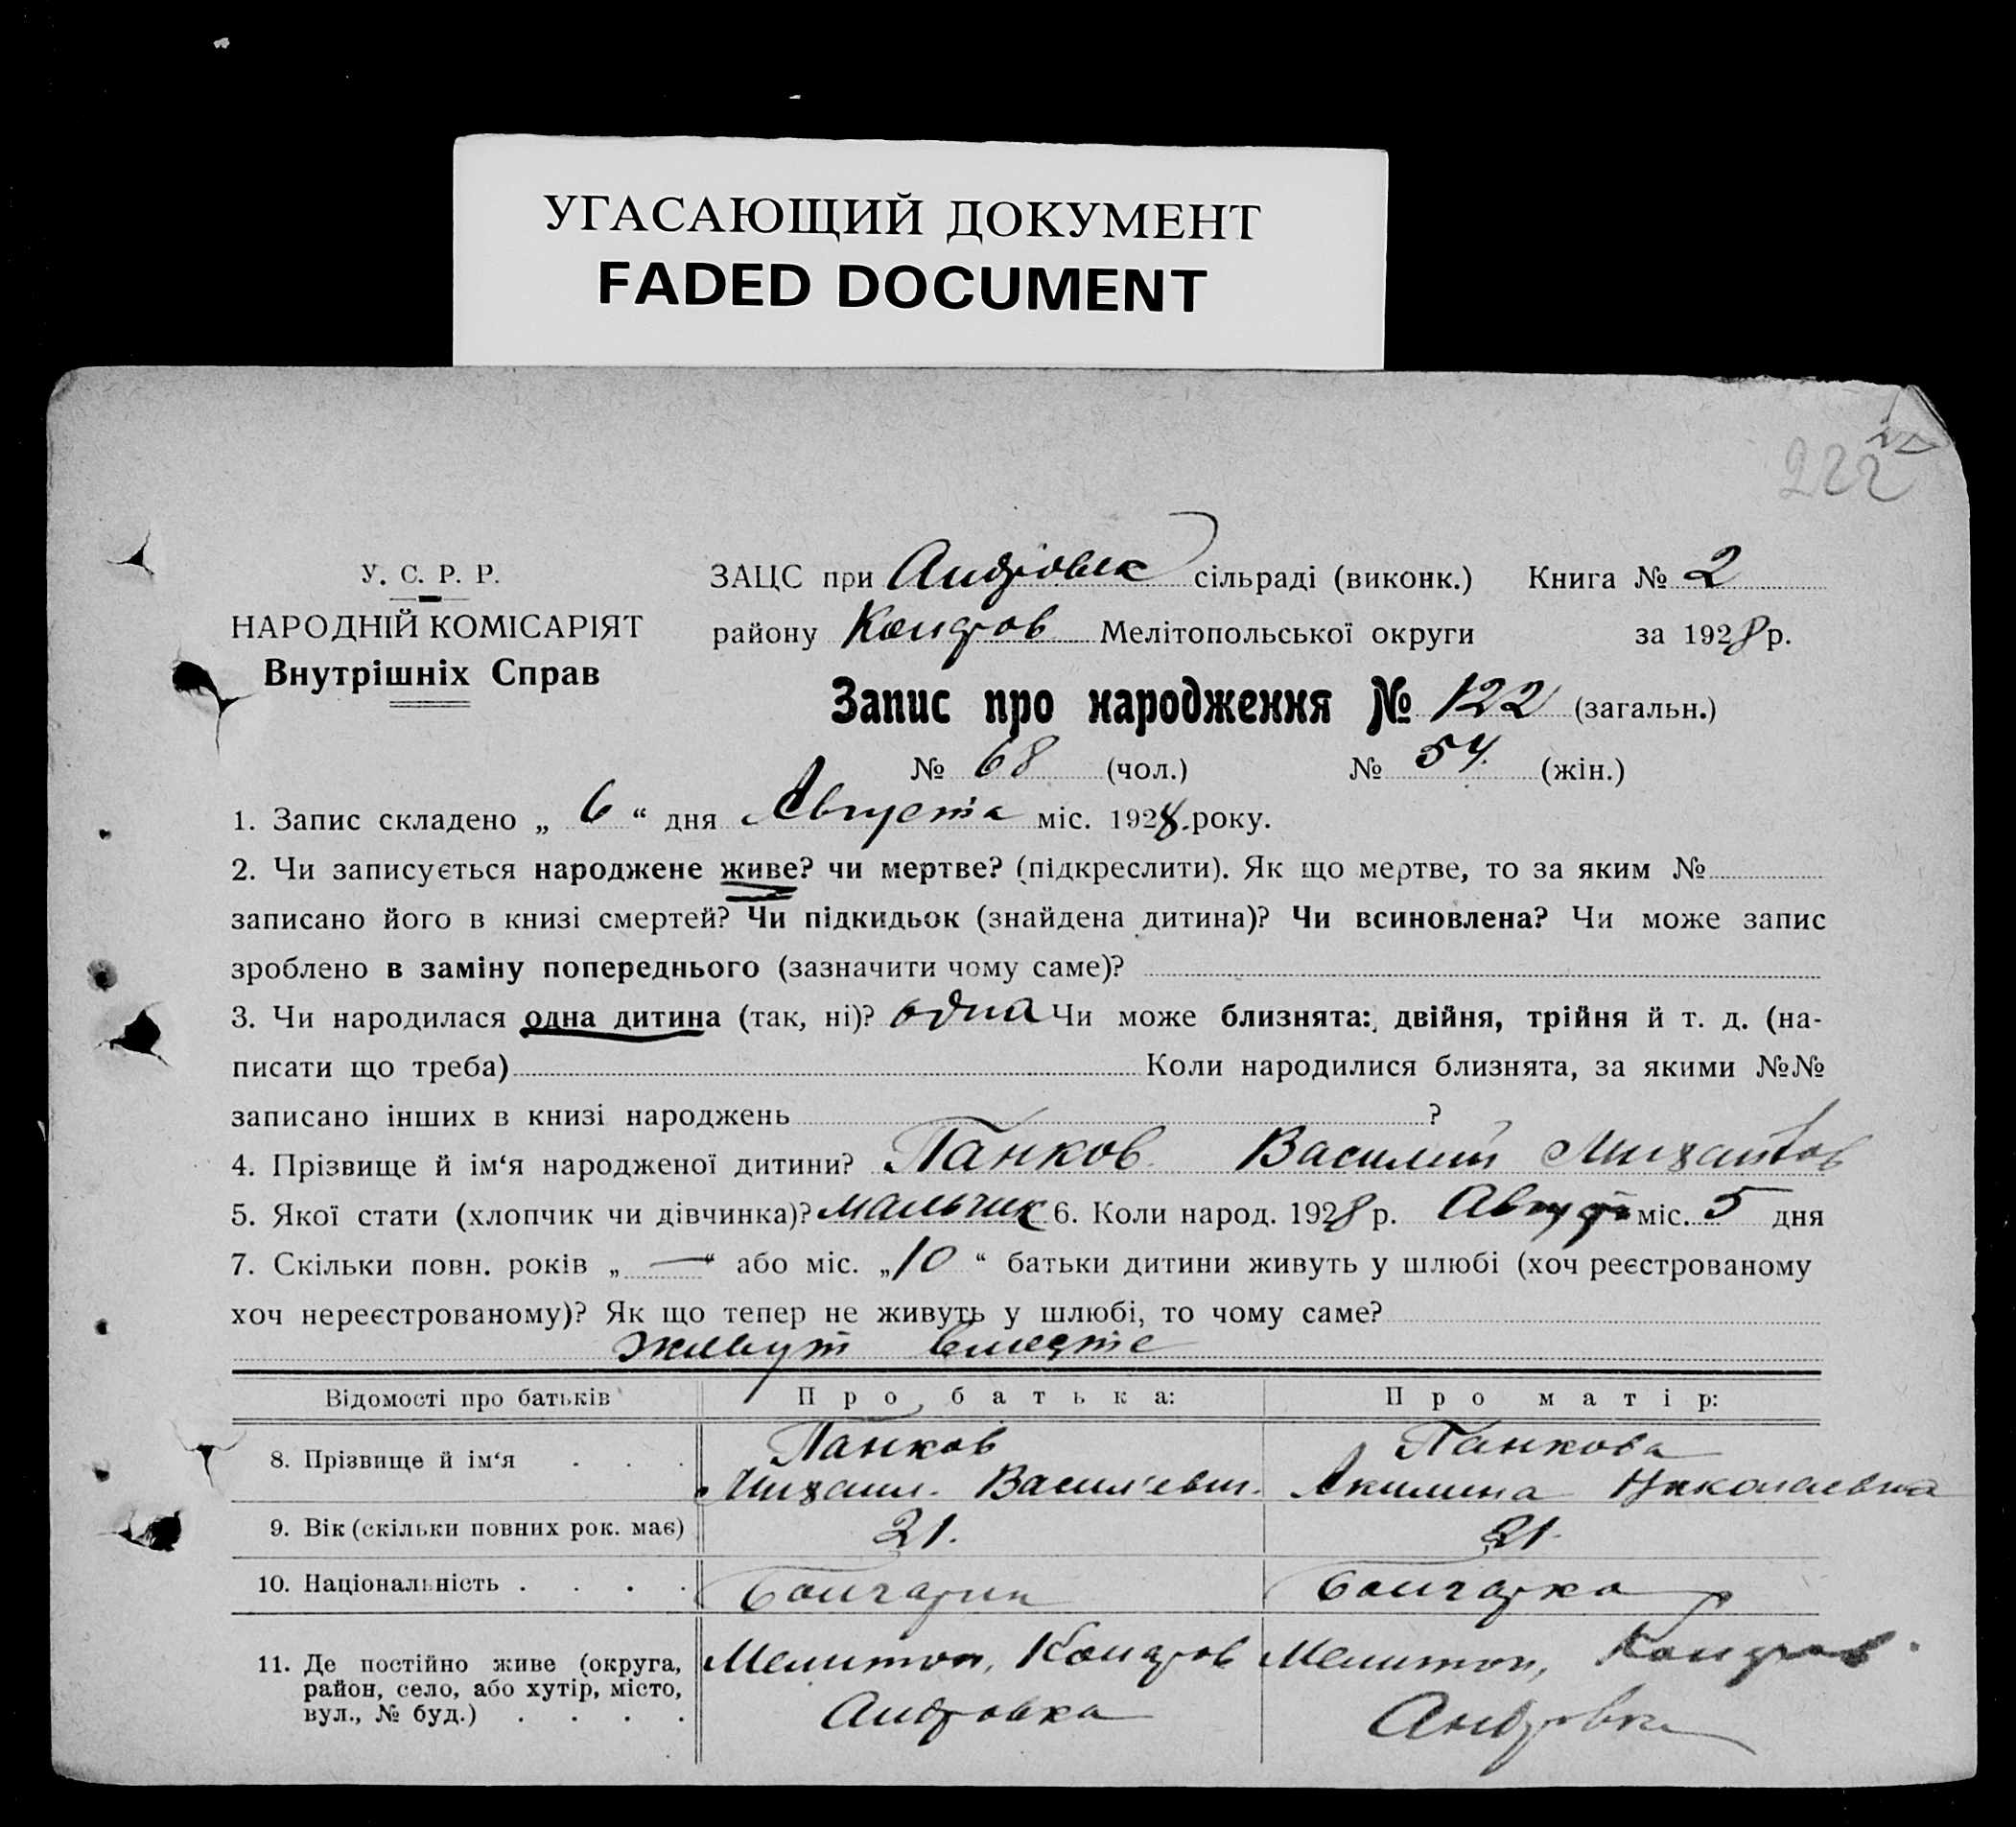 УГАСАЮЩИЙ ДОКУМЕНТ
FADED DOCUMENT
222
У. С. Р. Р.
НАРОДНІЙ КОМІСАРІЯТ
Внутрішніх Справ
ЗАЦС при Андровск сільраді (виконк.) Книга № 2
району Мелітопольської округи за 1928 р.
Запис про народження № 122 (загальн.)
№ 68 (чол.) № 54. (жін.)
1. Запис складено „ 6 “ дня Августа міс. 1928.року.
2. Чи записується народжене живе? чи мертве? (підкреслити). Як що мертве, то за яким №
записано його в книзі смертей? Чи підкидьок (знайдена дитина)? Чи всиновлена? Чи може запис
зроблено в заміну попереднього (зазначити чому саме)?
3. Чи народилася одна дитина (так, ні)? одна Чи може близнята: двійня, трійня й т. д. (на-
писати що треба) Коли народилися близнята, за якими №№
записано інших в книзі народжень ?
4. Прізвище й ім‘я народженої дитини? Панков Василий
5. Якої стати (хлопчик чи дівчинка)? мальчик 6. Коли народ. 1928 р. Август міс. 5 дня
7. Скільки повн. років „ — “ або міс. „ 10 “ батьки дитини живуть у шлюбі (хоч реєстрованому
хоч нереєстрованому)? Як що тепер не живуть у шлюбі, то чому саме?
живут вместе
Відомості про батьків Про батька: Про матір:
8. Прізвище й ім‘я . . . Панков Панкова
Михаил. Васил'евич. Акилина Николаевна
9. Вік (скільки повних рок. має) 21. 21.
10. Національність . . . . болгарин болгарка
11. Де постійно живе (округа, Мелитоп, Мелитоп,
район, село, або хутір, місто, Андровка Андровка
вул., № буд.) . . . .